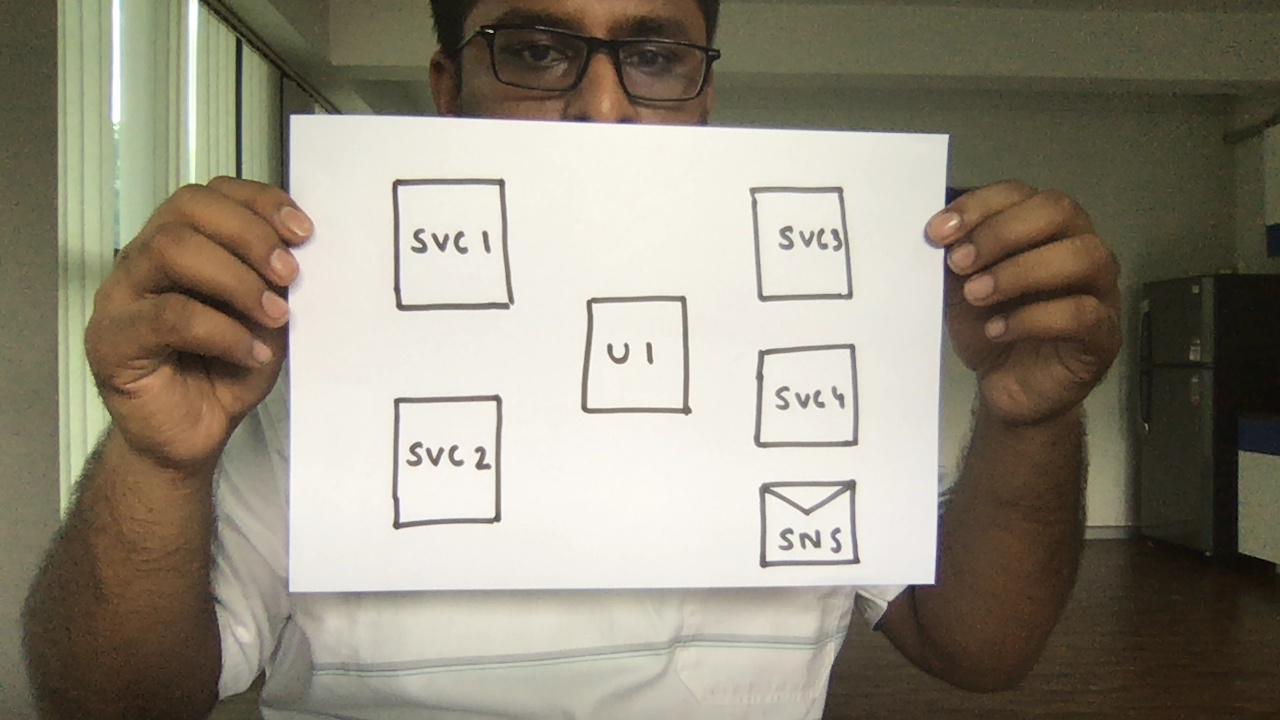 SVC 1
SVC3
U I
SVC4
SVC 2
SNS